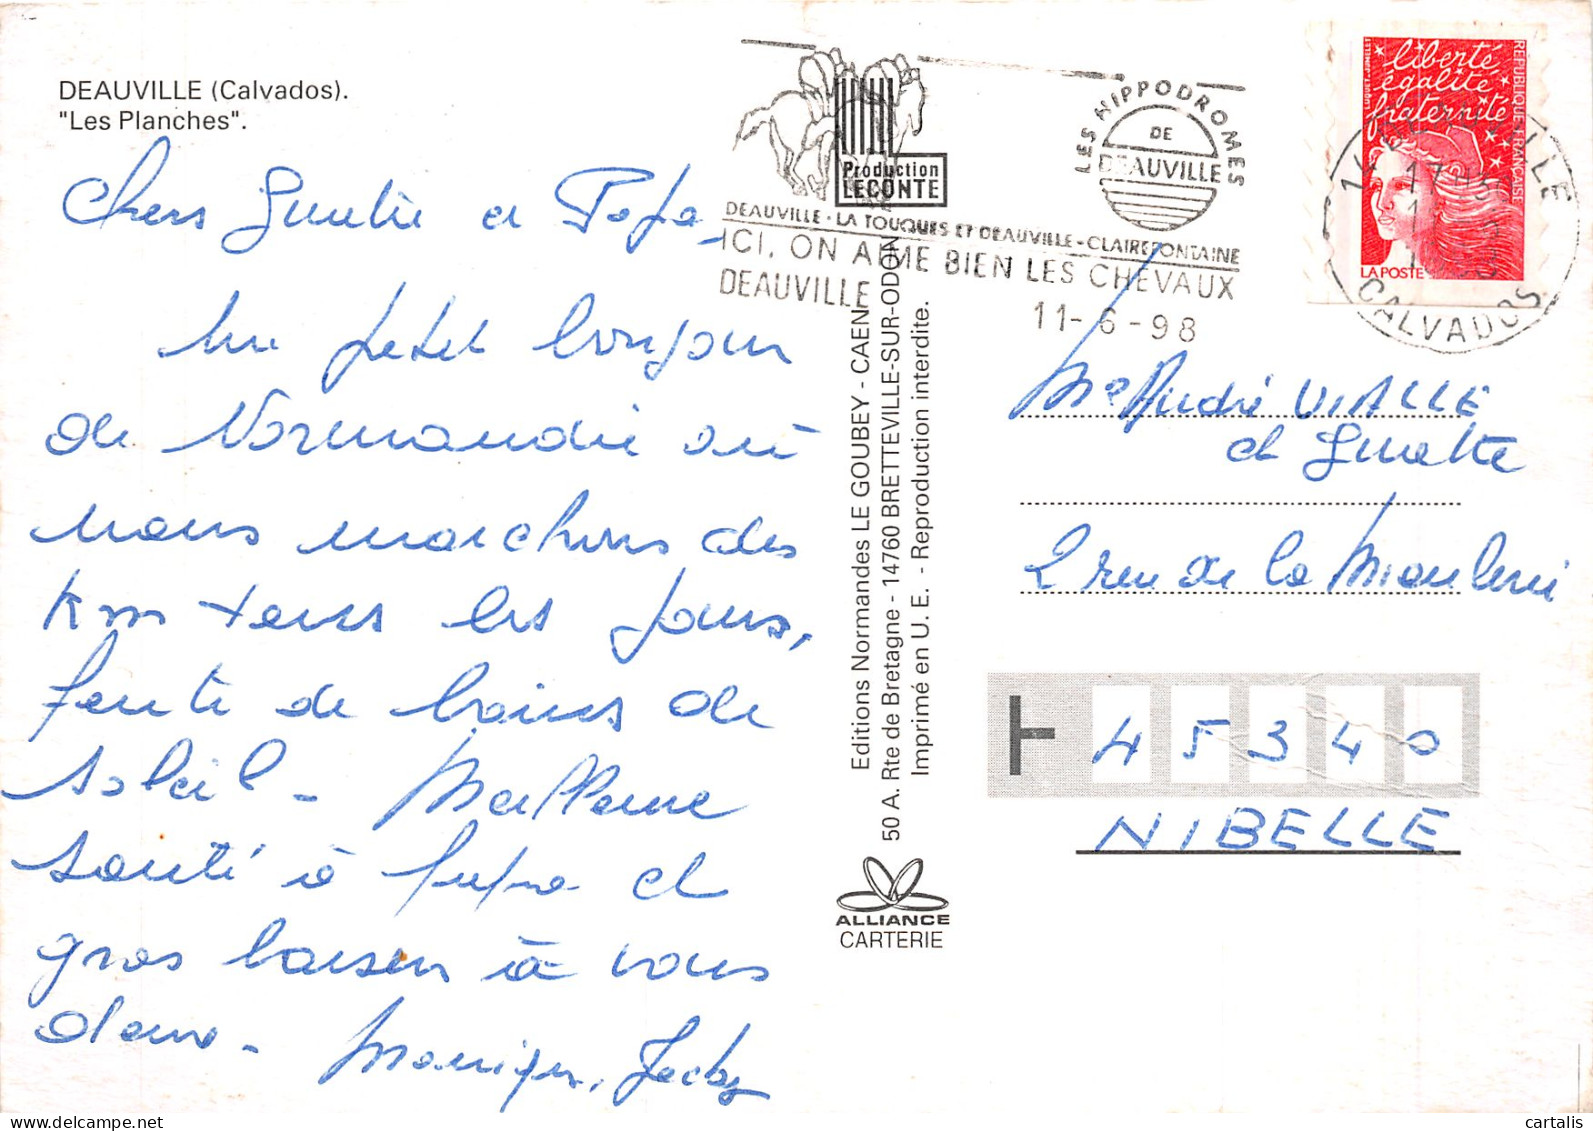 DEAUVILLE (Calvados).
"Les Planches".
Chers et Papa,
Un petit bonjour
de Normandie où
nous marchons des
km tous les jours,
de bains de
soleil - Meilleure
santé à papa et
gros baisers à vous
deux - Monique, Jacky
Production
LECONTE
LES HIPPODROMES
DE
DEAUVILLE
DEAUVILLE - LA TOUQUES ET DEAUVILLE - CLAIREFONTAINE
ICI, ON AIME BIEN LES CHEVAUX
DEAUVILLE
11-6-98
liberté
égalité
fraternité
RÉPUBLIQUE FRANÇAISE
LA POSTE
14
17H
CALVADOS
Editions Normandes LE GOUBEY - CAEN
50 A. Rte de Bretagne - 14760 BRETTEVILLE-SUR-ODON
Imprimé en U. E. - Reproduction interdite.
ALLIANCE
CARTERIE
Mr André VIALLE
et
2 rue de la
45340
NIBELLE
cartalis